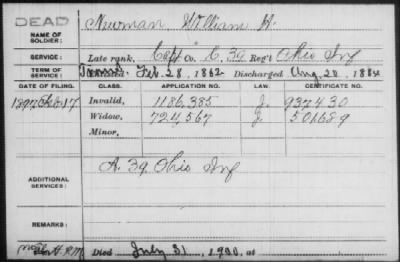 DEAD
NAME OF SOLDIER: Newman, William H.
SERVICE: Late rank, Capt Co. C, 39 Reg't Ohio Inf
TERM OF SERVICE: Feb. 28, 1862 Discharged Aug. 20, 1864
DATE OF FILING. CLASS. APPLICATION NO. LAW. CERTIFICATE NO.
1897 Feb 17 Invalid, 1186,385 J. 937430
Widow, 724,567 J. 501689
Minor,
ADDITIONAL SERVICES: A. 39 Ohio Inf
REMARKS:
Died July 31, 1900, at